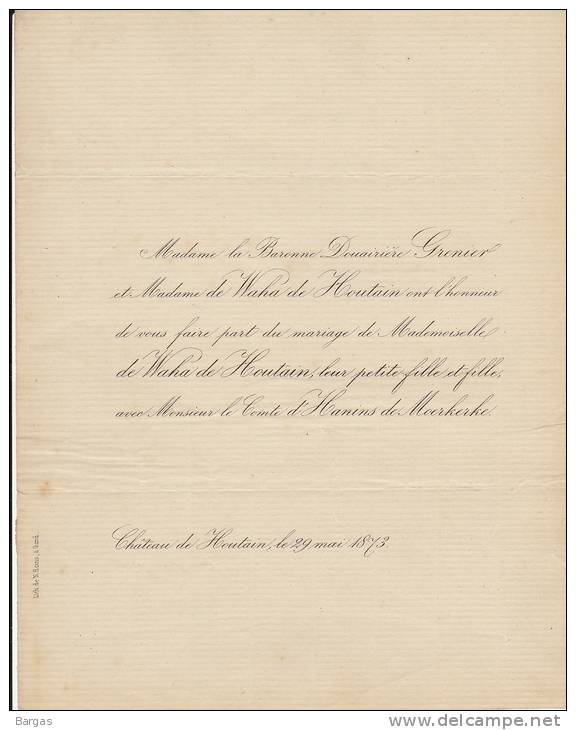 Madame la Baronne Douairière Grenier
et Madame de Waha de Houtain ont l'honneur
de vous faire part du mariage de Mademoiselle
de Waha de Houtain, leur petite fille et fille,
avec Monsieur le Comte d'Hanins de Moerkerke.
Château de Houtain, le 29 mai 1873.
Lith. de N. Heins, à Gand.
Bargas
www.delcampe.net